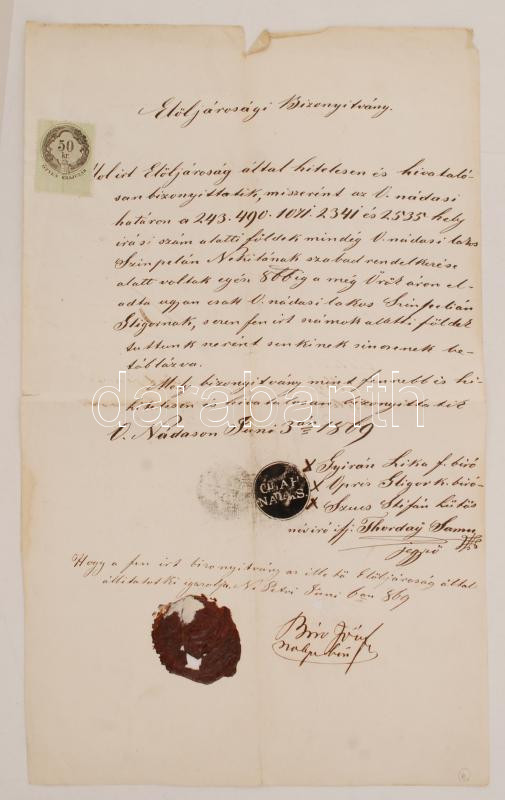 Elöljárosági Bizonyitvány.
50
kr
Alolirt Elöljáróság által hitelesen és hivataló-
san bizonyittatik, miszerént az O. nádasi
határon a 243. 490. 1071. 2341 és 2535 hely
irási szám alatti földek mindég O. nádasi lakos
Szinpetán Nekitának szabad rendelkezése
alatt voltak egész 866ig a még Örök áron el-
adta ugyan csak O. nádasi lakos Szinpetián
Gligornak, s ezen fen irt számok alatti földek
tudtunk szerént senkinek sincsenek be-
táblázva.
Mely bizonyitvány mint fennebb is hi-
telesen és hivatalosan bizonyittatik
O. Nádason Juni 3án 1869
OLAH
NADAS.
Lika f. biró
Opris Gligor k. biró
Szucs Stifán hütös
névíró ifj: Thorday Samu
jegyző
Hogy a fen irt bizonyitvány az illető Elöljáróság által
állitatott ki igazolja. Juni 6án 869
Biró Józsf
darabanth